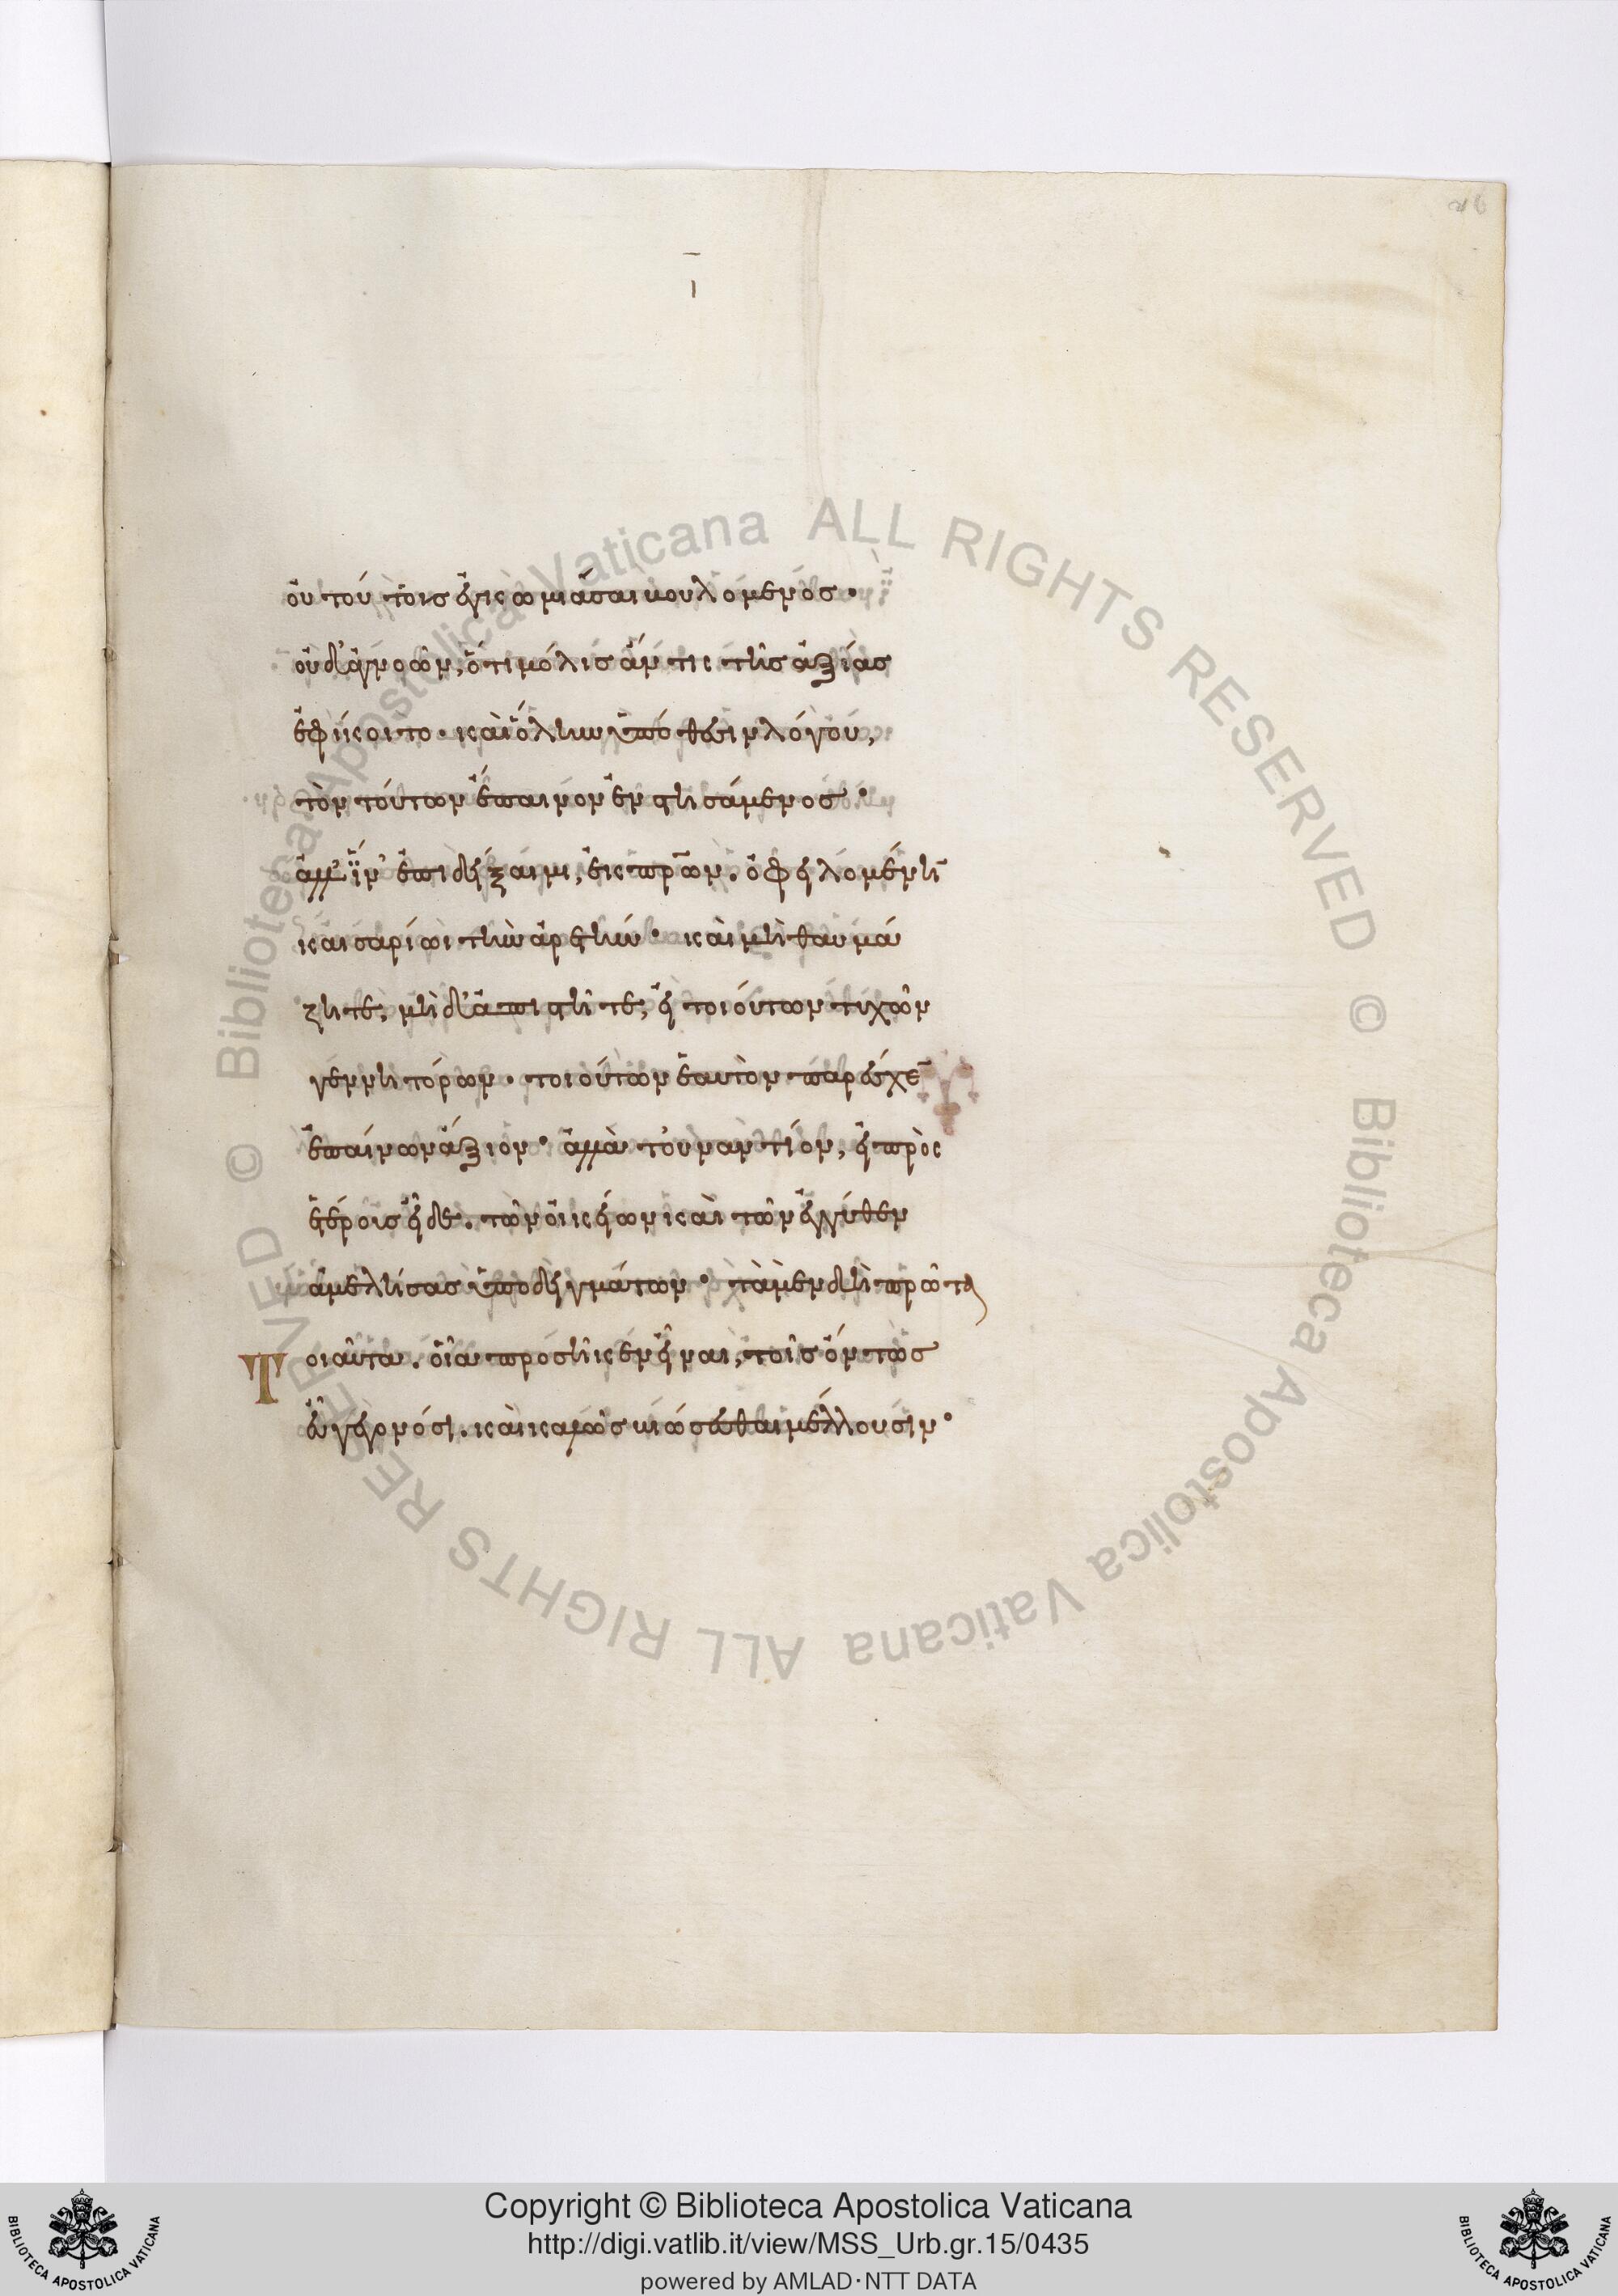 ι
οὐ τούτοις ἐγκωμιάσαι βουλόμενος·
οὐδ' ἀγνοῶν, ὅτι μόλις ἄν τις τῆς ἀξίας
ἐφίκοιτο. καὶ ὅλην ὑπόθεσιν λόγου,
τὸν τούτων ἔπαινον ἐνστησάμενος·
ἀλλ' ἵν' ἐπιδείξαιμι, ἐκ πρῶν. ὀφειλομένην
καισαρίωι τὴν ἀρετήν· καὶ μὴ θαυμά
ζητε, μὴ δ' ἀπιστῆτε, εἰ τοιούτων τυχὼν
γεννητόρων. τοιούτων ἑαυτὸν παρέσχεν
ἐπαίνων ἄξιον· ἀλλὰ τοὐναντίον, εἰ πρὸς
ἑτέροις εἶδε. τῶν οἰκείων καὶ τῶν ἐγγύθεν
ἀμελήσας ὑποδειγμάτων· τὰ μὲν δὴ πρῶτα
Τοιαῦτα. οἷα προσῆκεν εἶναι, τοῖς ὄντως
εὐγενέσι. καὶ καλῶς βιώσεσθαι μέλλουσιν·
Copyright © Biblioteca Apostolica Vaticana
http://digi.vatlib.it/view/MSS_Urb.gr.15/0435
powered by AMLAD·NTT DATA
BIBLIOTECA APOSTOLICA VATICANA
BIBLIOTECA APOSTOLICA VATICANA
© Biblioteca Apostolica Vaticana ALL RIGHTS RESERVED © Biblioteca Apostolica Vaticana ALL RIGHTS RESERVED